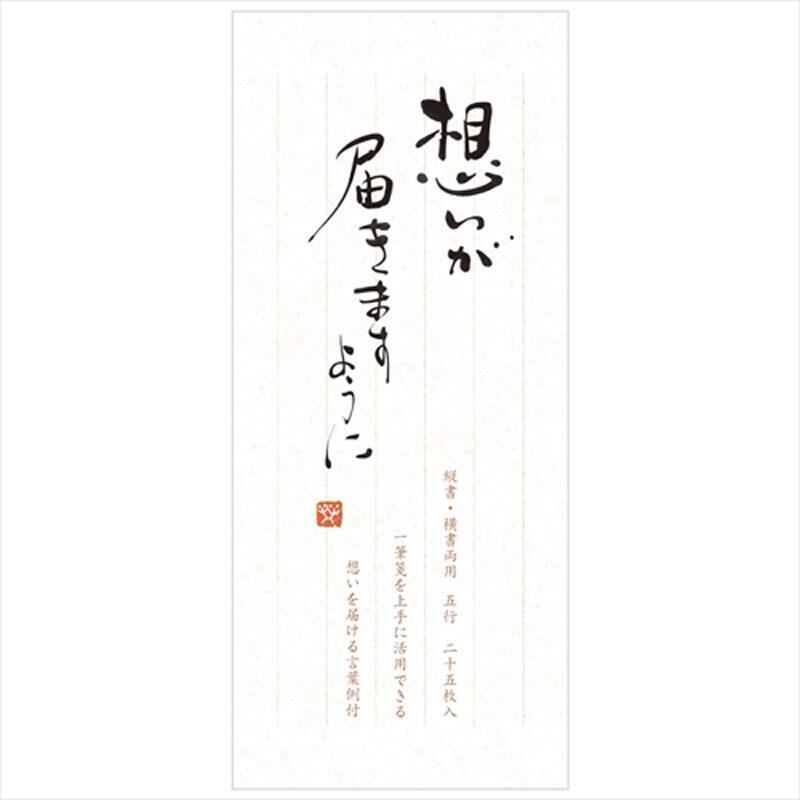 想いが
届きます
ように
縦書・横書両用　五行　二十五枚入
一筆箋を上手に活用できる
想いを届ける言葉例付